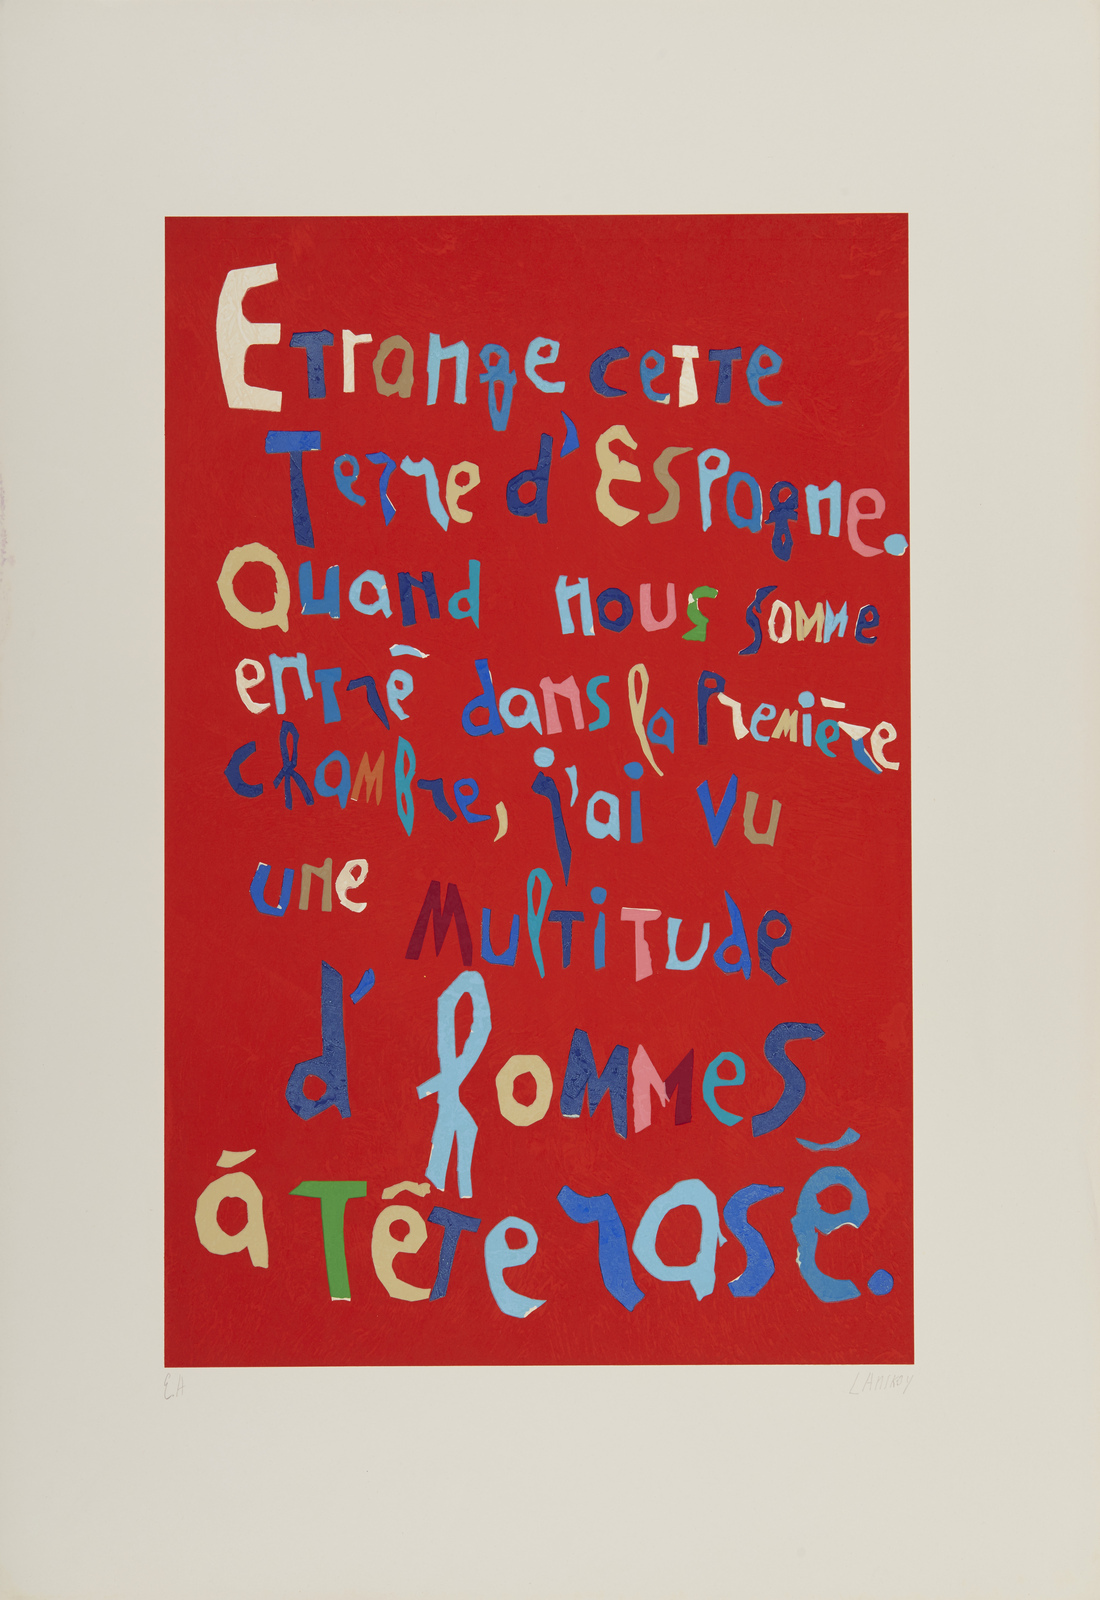 Etrange cette
Terre d'Espagne.
Quand nous somme
entrē dans la Première
chambre, j'ai vu
une Multitude
d'hommes
á Tête rasé.
EA
LANSKOY